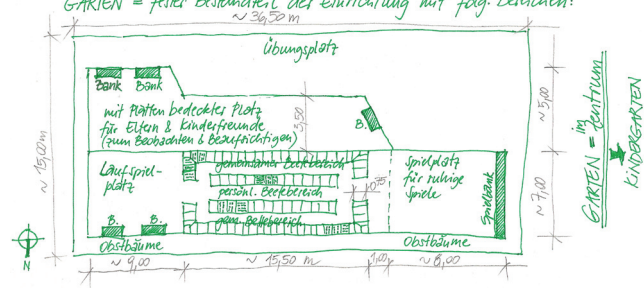 GARTEN = fester Bestandteil der Einrichtung mit folg. Bereichen:
~ 36,50 m
Übungsplatz
Bank Bank
mit Platten bedeckter Platz
für Eltern & Kinderfreunde
(zum Beobachten & Beaufsichtigen)
3,50
B.
~ 5,00
~ 15,00m
Laufspiel-
platz
gemeinsamer Beetbereich
persönl. Beetbereich
gem. Beetbereich
0,75
Spielplatz
für ruhige
Spiele
Spielbank
~ 7,00
B. B.
Obstbäume
Obstbäume
N
~ 9,00
~ 15,50 m
1,00
~ 8,00
GARTEN = im Zentrum
KINDERGARTEN